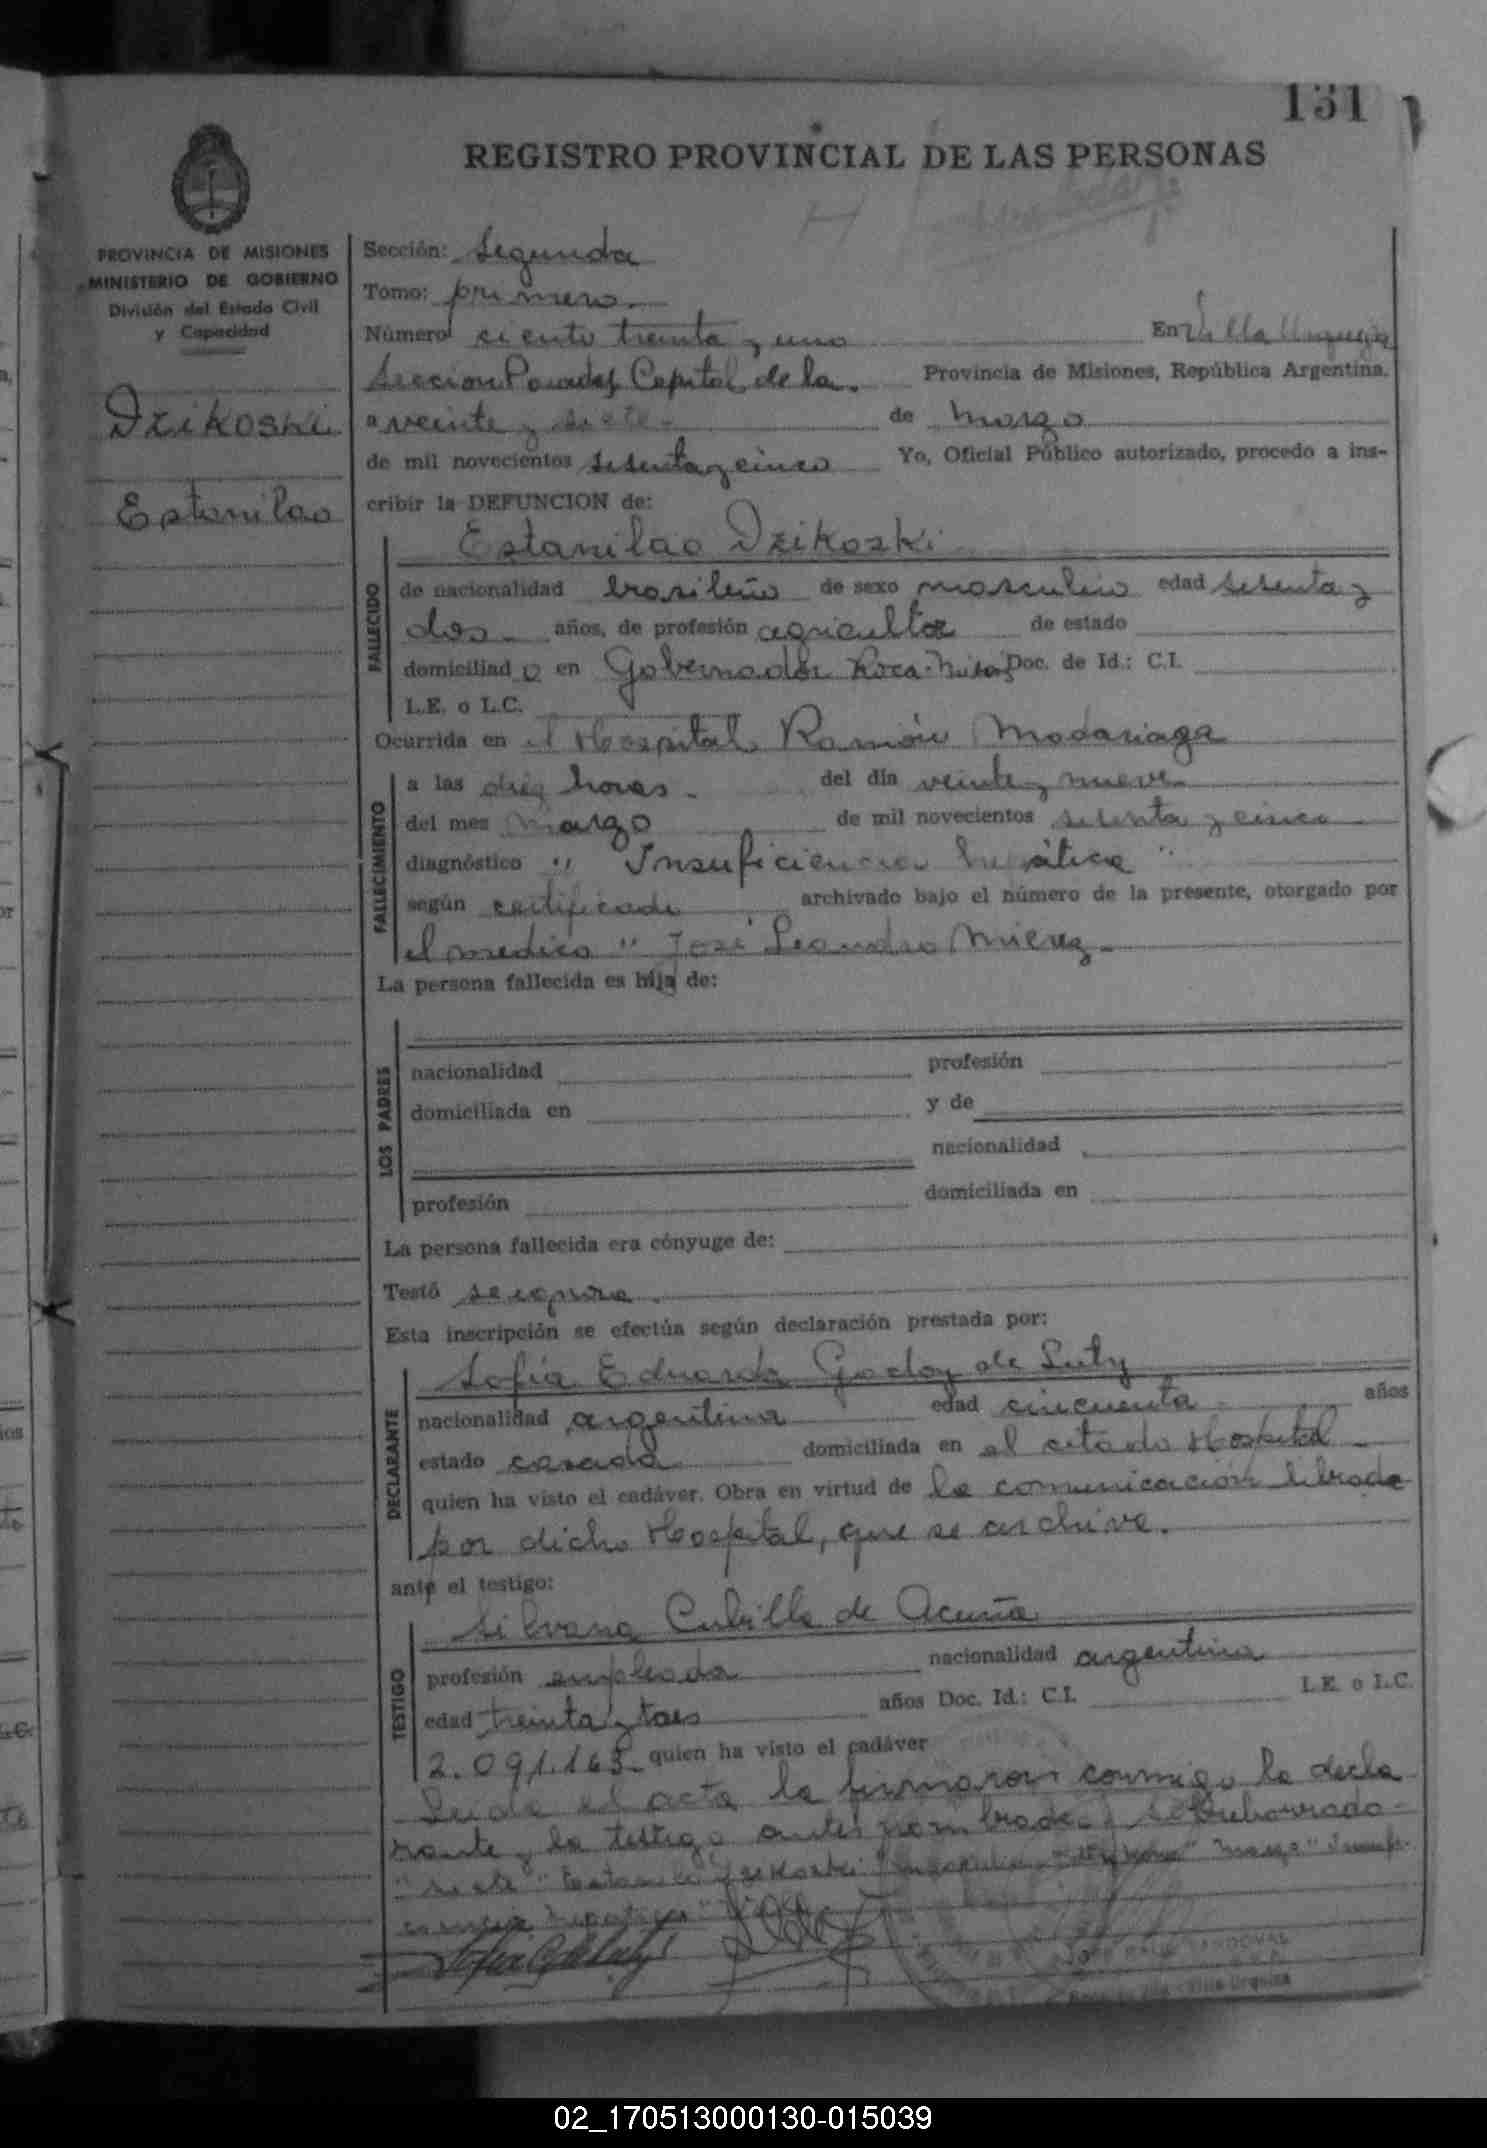 131
REGISTRO PROVINCIAL DE LAS PERSONAS
PROVINCIA DE MISIONES
MINISTERIO DE GOBIERNO
División del Estado Civil
y Capacidad
Dzikoski
Estanilao
Sección: Segunda
Tomo: primero
Número ciento treinta y uno En Villa Urquiza
Sección Posadas Capital de la Provincia de Misiones, República Argentina,
a veinte y siete de marzo
de mil novecientos setenta y cinco Yo, Oficial Público autorizado, procedo a ins-
cribir la DEFUNCION de:
Estanilao Dzikoski
FALLECIDO
de nacionalidad brasileño de sexo masculino edad sesenta y
dos años, de profesión agricultor de estado
domiciliado en Gobernador Roca- Doc. de Id.: C.I.
L.E. o L.C.
Ocurrida en el Hospital Ramón Madariaga
FALLECIMIENTO
a las diez horas. del día veinte y nueve
del mes marzo de mil novecientos setenta y cinco
diagnóstico " Insuficiencia hepática "
según certificado archivado bajo el número de la presente, otorgado por
el medico " José Leandro Mierez
La persona fallecida es hija de:
LOS PADRES
nacionalidad profesión
domiciliada en y de
nacionalidad
profesión domiciliada en
La persona fallecida era cónyuge de:
Testó se ignora.
Esta inscripción se efectúa según declaración prestada por:
DECLARANTE
Sofía Eduarda Godoy de Luty
nacionalidad argentina edad cincuenta años
estado casada domiciliada en el citado Hospital
quien ha visto el cadáver. Obra en virtud de la comunicación librada
por dicho Hospital, que se archiva.
ante el testigo:
TESTIGO
Silvana Cubilla de Acuña
profesión empleada nacionalidad argentina
edad treinta y tres años Doc. Id.: C.I. L.E. o L.C.
2.091.163 quien ha visto el cadáver
Leida el acta la firmaron conmigo la decla
rante y la testigo antes nombrada. Sobreborrado-
"siete" Dzikoski "marzo"
hepatica"
JOSE RAUL SANDOVAL
Villa Urquiza
02_170513000130-015039